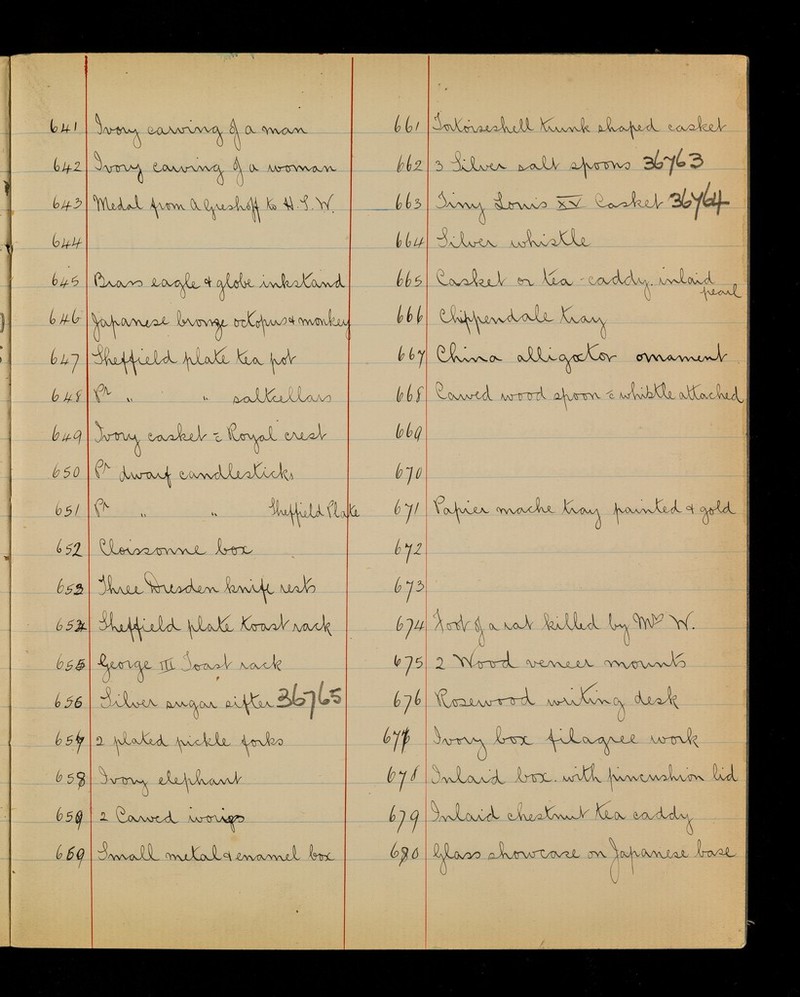 641 Ivory carving of a man
642 Ivory carving of a woman
643 Medal from A Greshoff to H.S.W.
644
645 Brass eagle & globe inkstand
646 Japanese bronze octopus & monkey
647 Sheffield plate tea pot
648 Pr " " saltcellars
649 Ivory casket c̄ Royal crest
650 Pr dwarf candlesticks
651 Pr " " Sheffield Plate
652 Cloissonne box
653 Three Dresden knife rests
654 Sheffield plate toast rack
655 George III Toast rack
656 Silver sugar sifter 36765
657 2 plated pickle forks
658 Ivory elephant
659 2 Carved
660 Small metal & enamel box
661 Tortoiseshell trunk shaped casket
662 3 Silver salt spoons 36763
663 Tiny Louis XV Casket 36764
664 Silver whistle
665 Casket or tea-caddy. inlaid
pearl
666 Chippendale tray
667 China alligator ornament
668 Carved wood spoon c̄ whistle attached
669
670
671 Papier mache tray painted & gold
672
673
674 Foot of a rat killed by Mrs W.
675 2 Wood veneer mounts
676 Rosewood writing desk
677 Ivory box filagree work
678 Inlaid box. with pincushion lid
679 Inlaid chestnut tea caddy
680 Glass showcase on Japanese base